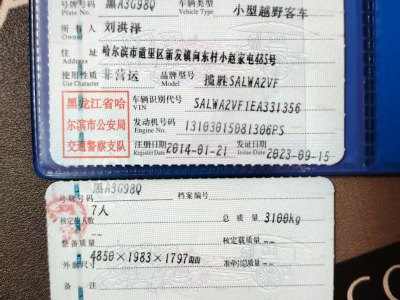 号牌号码 黑A3G98Q 车辆类型 小型越野客车
Plate No. Vehicle Type
所有人 刘洪泽
Owner
住址 哈尔滨市道里区新发镇向东村小赵家屯485号
使用性质 非营运 品牌型号 揽胜SALWA2VF
Use Character Model
黑龙江省哈
尔滨市公安局
交通警察支队
车辆识别代号 SALWA2VF1EA331356
VIN
发动机号码 13103015081306PS
Engine No.
注册日期 2014-01-21 发证日期 2023-09-15
Register Date Issue Date
号牌号码 黑A3G98Q 档案编号
核定载人数 7人 总质量 3100kg
整备质量 -- 核定载质量 --
外廓尺寸 4850×1983×1797mm 准牵引总质量 --
备注 --